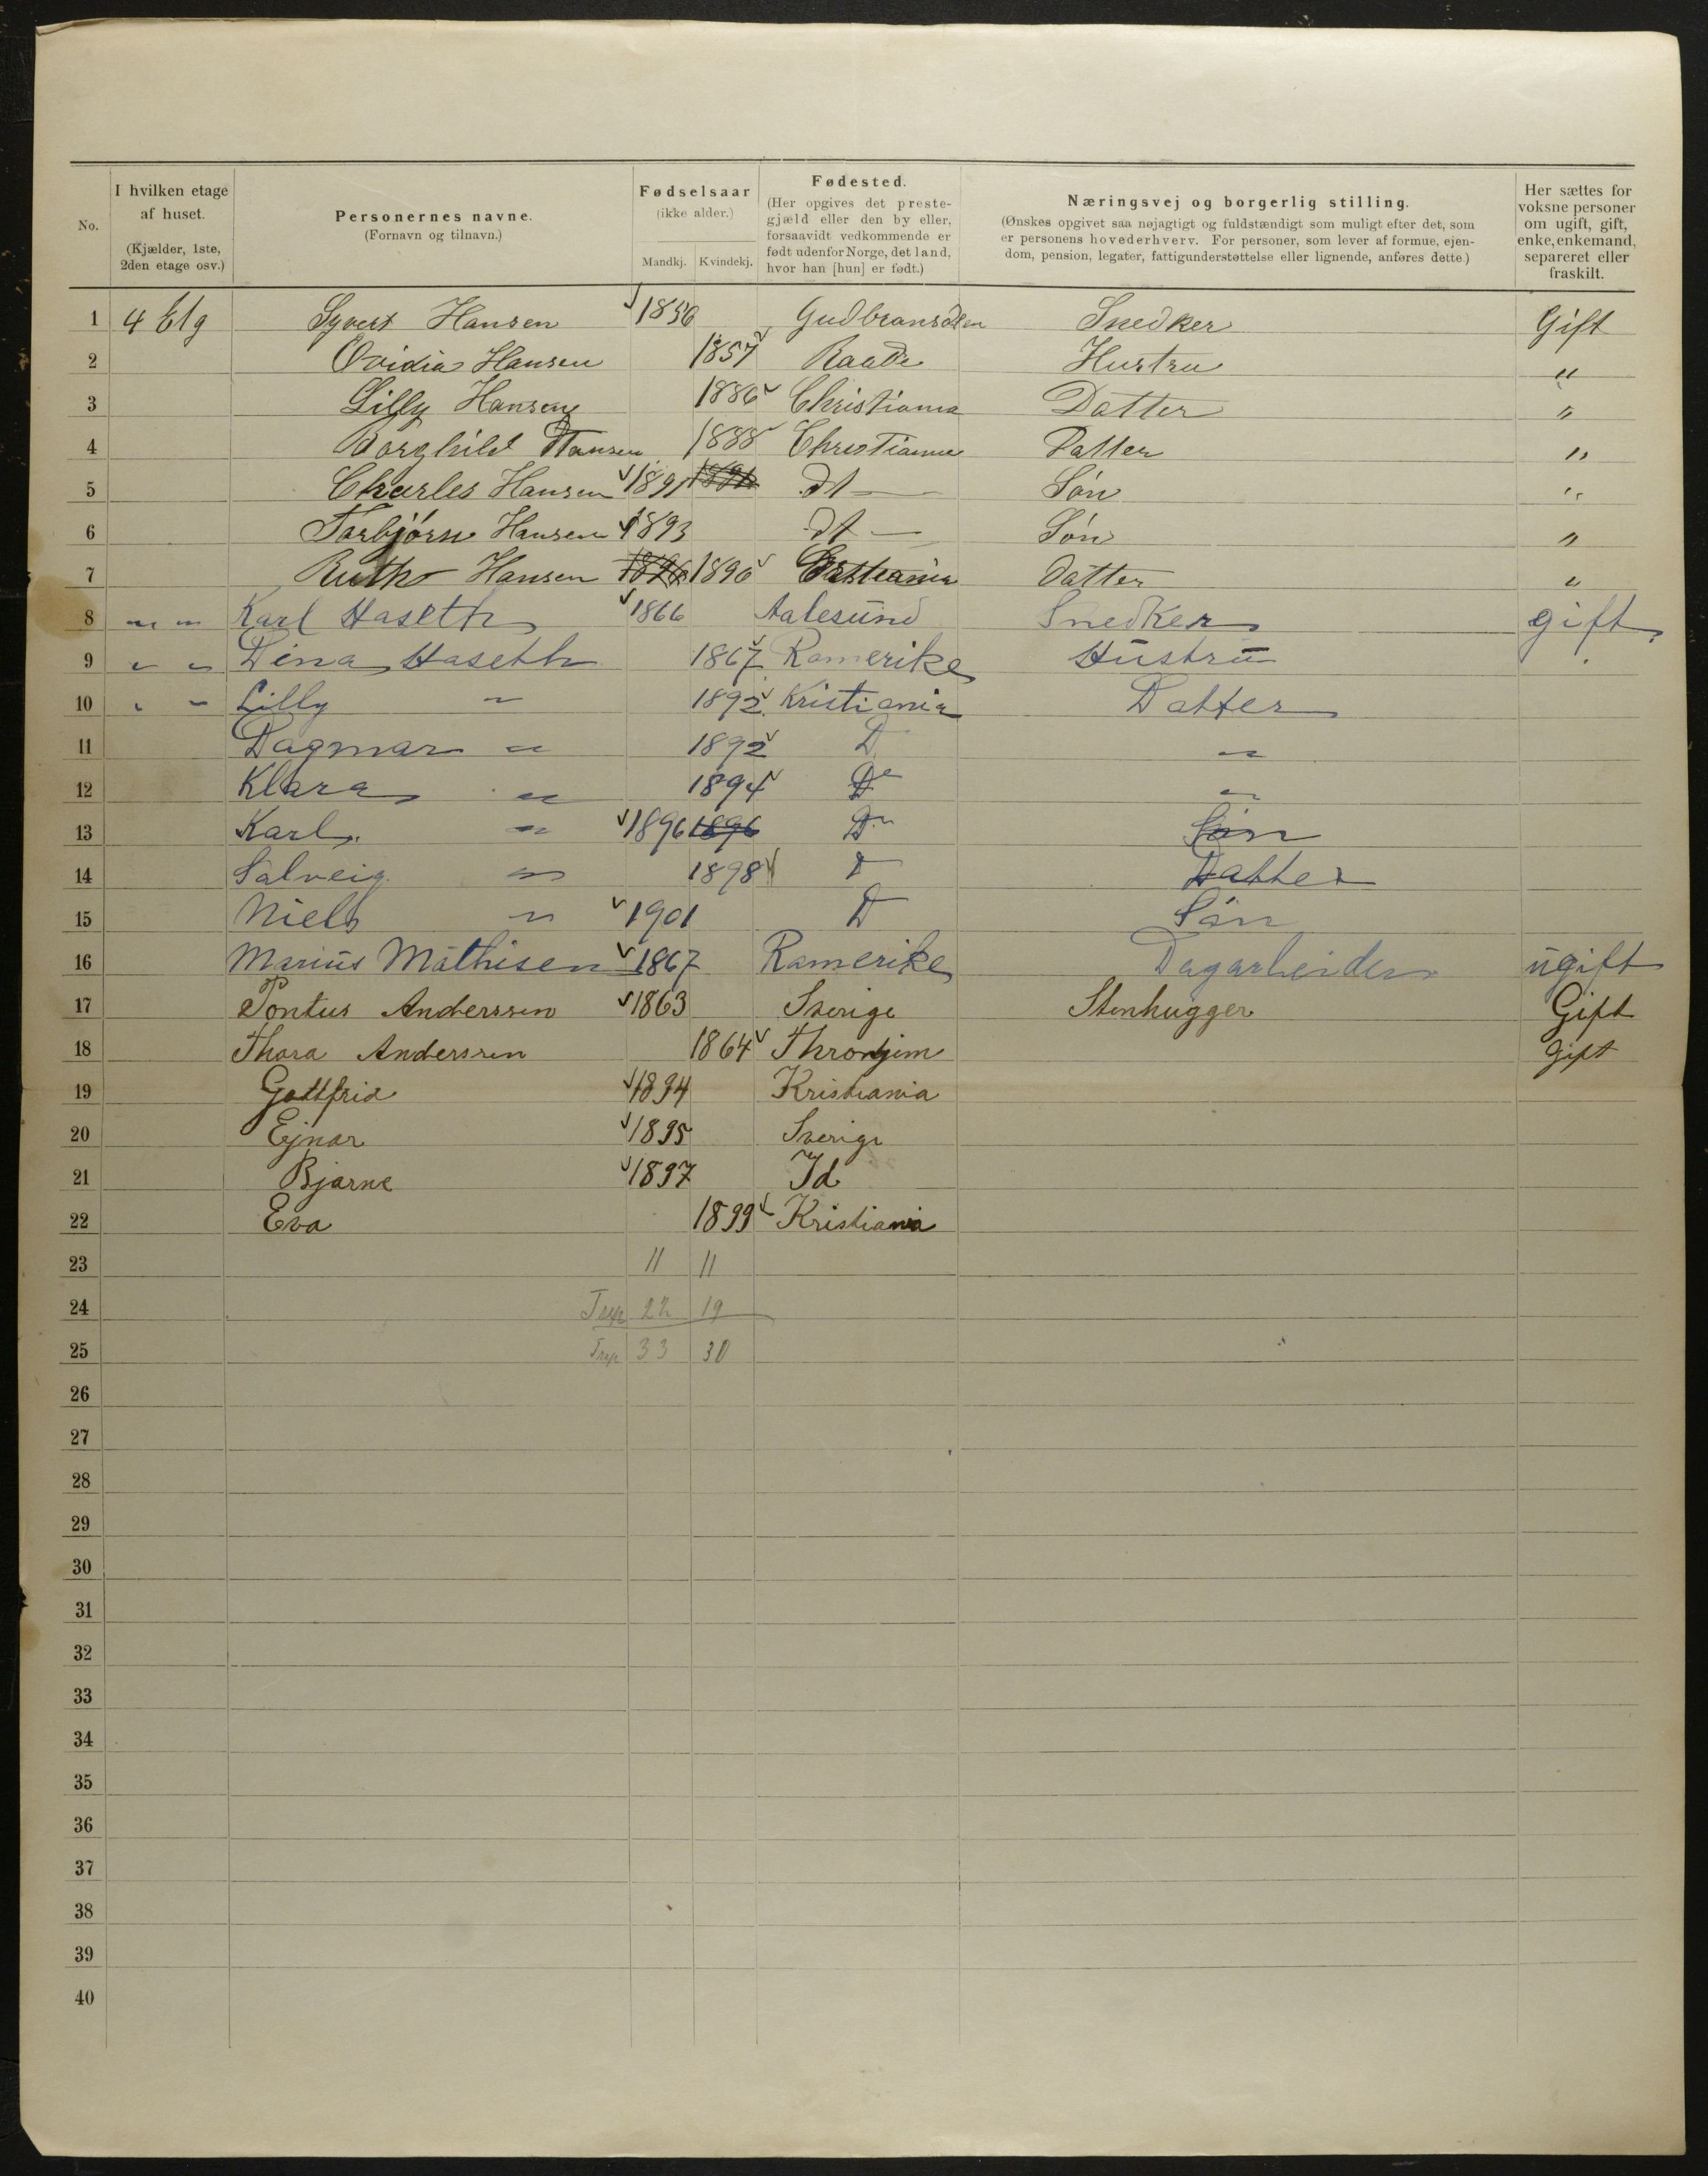 No.
I hvilken etage
af huset.
(Kjælder, 1ste,
2den etage osv.)
Personernes navne.
(Fornavn og tilnavn.)
Fødselsaar
(ikke alder.)
Mandkj. Kvindekj.
Fødested.
(Her opgives det preste-
gjæld eller den by eller,
forsaavidt vedkommende er
født udenfor Norge, det land,
hvor han [hun] er født.)
Næringsvej og borgerlig stilling.
(Ønskes opgivet saa nøjagtigt og fuldstændigt som muligt efter det, som
er personens hovederhverv. For personer, som lever af formue, ejen-
dom, pension, legater, fattigunderstøttelse eller lignende, anføres dette.)
Her sættes for
voksne personer
om ugift, gift,
enke, enkemand,
separeret eller
fraskilt.
1 4 Etg Syvert Hansen 1856 Gudbransdalen Snedker Gift
2 Ovidia Hansen 1857 Raade Hustru "
3 Lilly Hansen 1886 Christiania Datter "
4 Borghild Hansen 1888 Christiania Datter "
5 Charles Hansen 1891 dt — Søn "
6 Torbjørn Hansen 1893 dt — Søn "
7 Ruth Hansen 1896 1896 Cristiania Datter "
8 " " Karl Haseth 1866 Aalesund Snedker gift
9 " " Dina Haseth 1867 Romerike Hustru "
10 " " Lilly " 1892 Kristiania Datter
11 Dagmar " 1892 D "
12 Klara " 1894 Do "
13 Karl " 1896 1896 Do Søn
14 Solveig " 1898 D Datter
15 Niels " 1901 D Søn
16 Marius Mathisen 1867 Romerike Dagarbeider ugift
17 Pontus Anderssen 1863 Sverige Stenhugger Gift
18 Thora Anderssen 1864 Thronjem Gift
19 Gottfrid 1894 Kristiania
20 Ejnar 1895 Sverige
21 Bjarne 1897 Id
22 Eva 1899 Kristiania
23 11 11
24 22 19
25 33 30
26
27
28
29
30
31
32
33
34
35
36
37
38
39
40